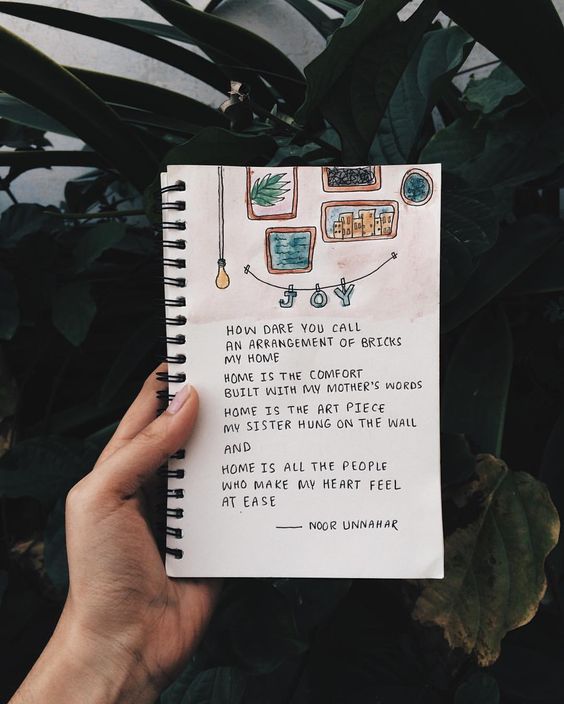 JOY
HOW DARE YOU CALL
AN ARRANGEMENT OF BRICKS
MY HOME
HOME IS THE COMFORT
BUILT WITH MY MOTHER'S WORDS
HOME IS THE ART PIECE
MY SISTER HUNG ON THE WALL
AND
HOME IS ALL THE PEOPLE
WHO MAKE MY HEART FEEL
AT EASE
— NOOR UNNAHAR